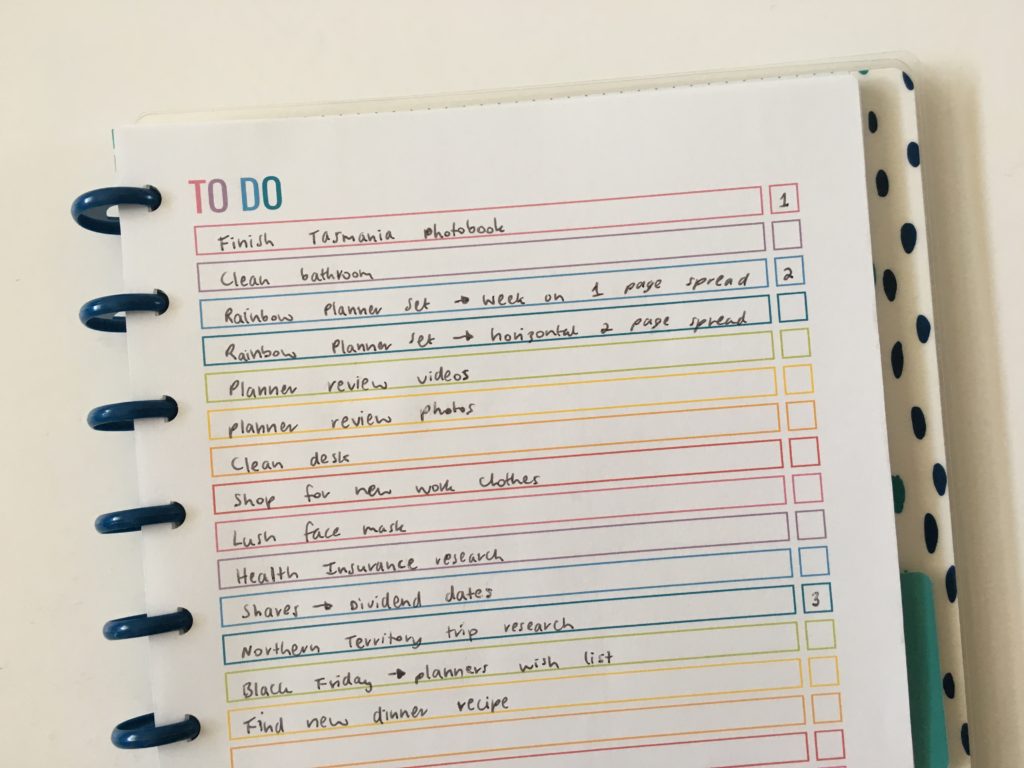 TO DO
Finish Tasmania photobook 1
Clean bathroom
Rainbow Planner set → week on 1 page spread 2
Rainbow Planner set → horizontal 2 page spread
Planner review videos
planner review photos
Clean desk
Shop for new work clothes
Lush face mask
Health Insurance research
Shares → Dividend dates
Northern Territory trip research 3
Black Friday → planners wish list
Find new dinner recipe